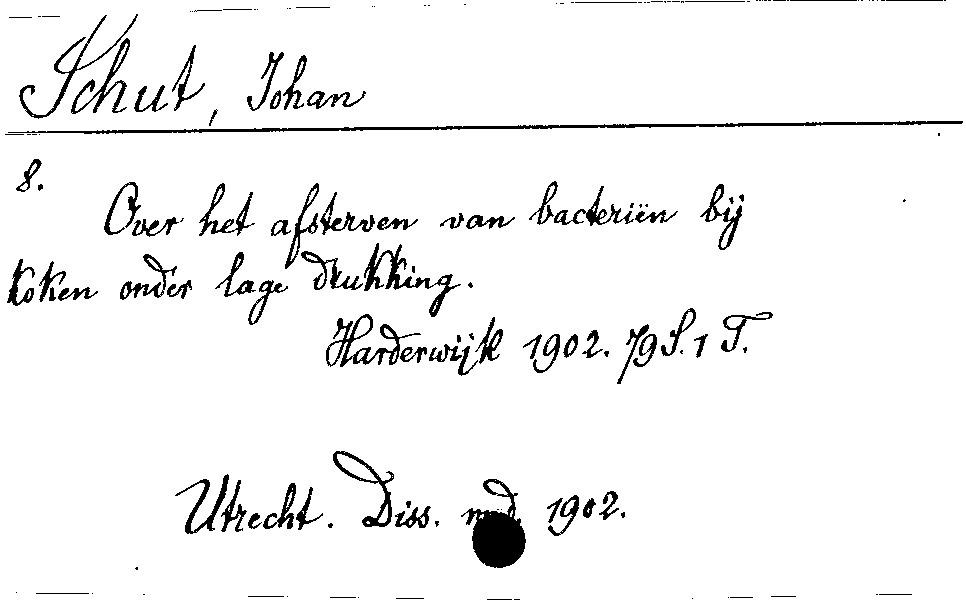 Schut, Johan
8.
Over het afsterven van bacteriën bij
koken onder lage drukking.
Harderwijk 1902. 79 S. 1 T.
Utrecht. Diss. med. 1902.